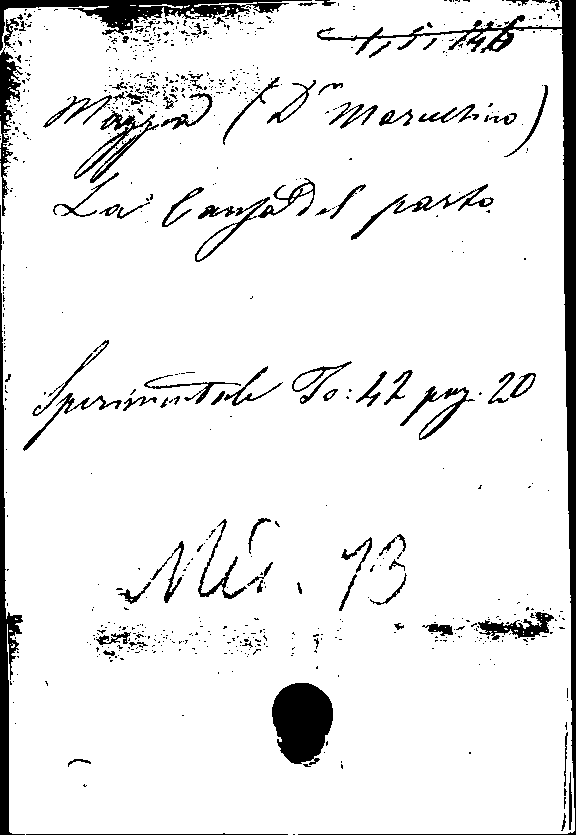 1, 5, 146
Mazzia (Dr Marcellino)
La Causa del parto
Sperimentale To: 42 pag. 20
Mis. 73